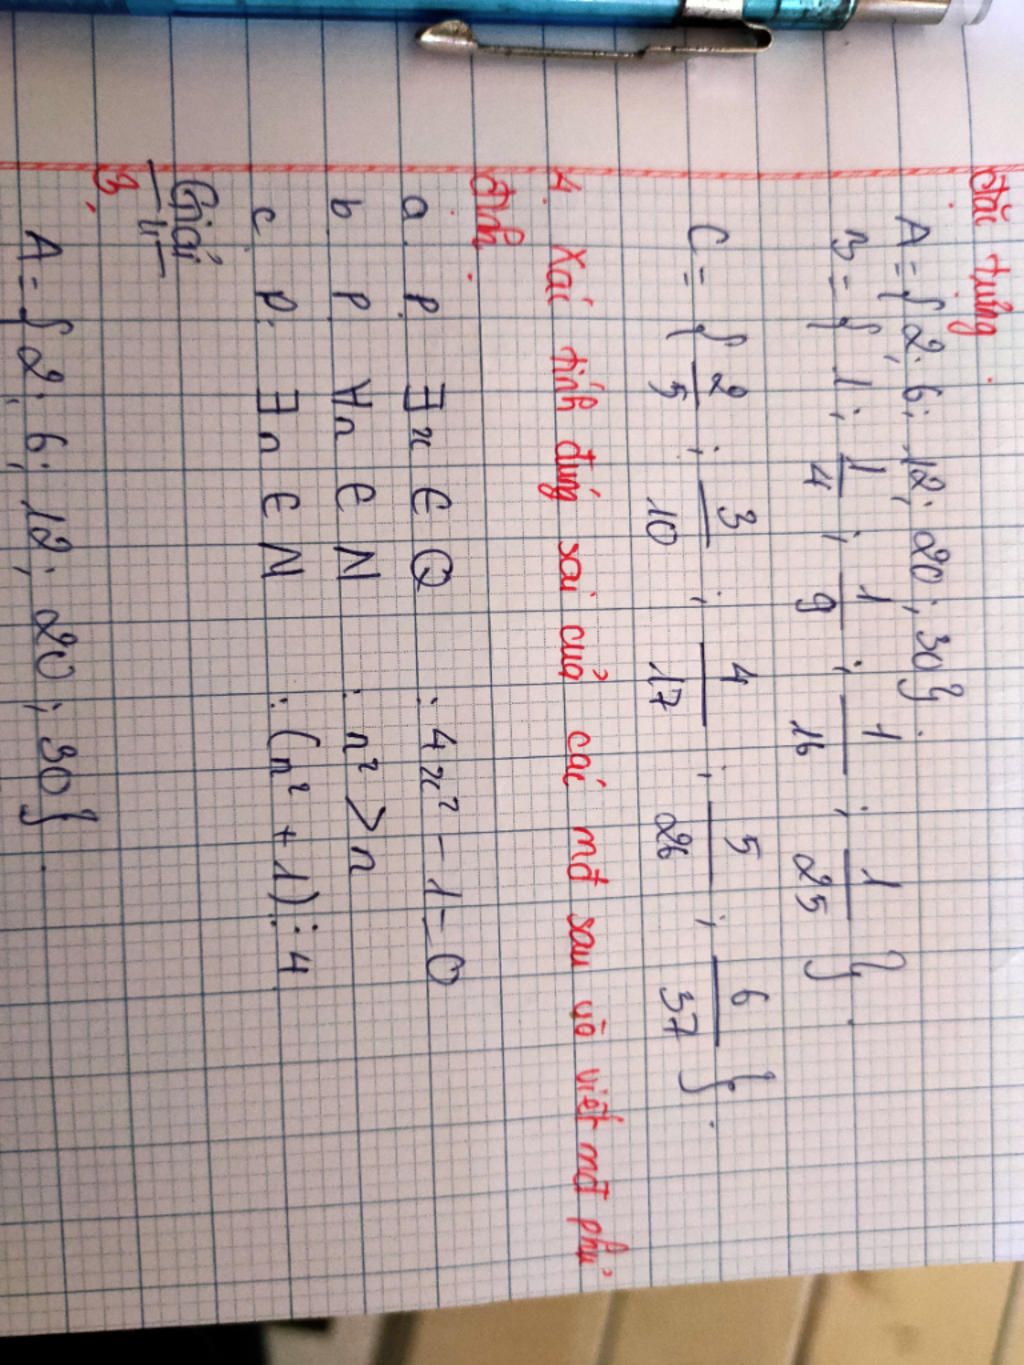 đặc trưng
A = { 2; 6; 12; 20; 30}.
B = { 1; 1/4; 1/9; 1/16; 1/25 }.
C = { 2/5; 3/10; 4/17; 5/26; 6/37 }.
4. Xác tính đúng sai của các mđ sau và viết mđ phủ
định.
a. P. ∃x ∈ Q : 4x² - 1 = 0
b. P. ∀n ∈ N : n² > n
c. P. ∃n ∈ N : (n² + 1) ⋮ 4
Giải
3.
A = { 2; 6; 12; 20; 30}.